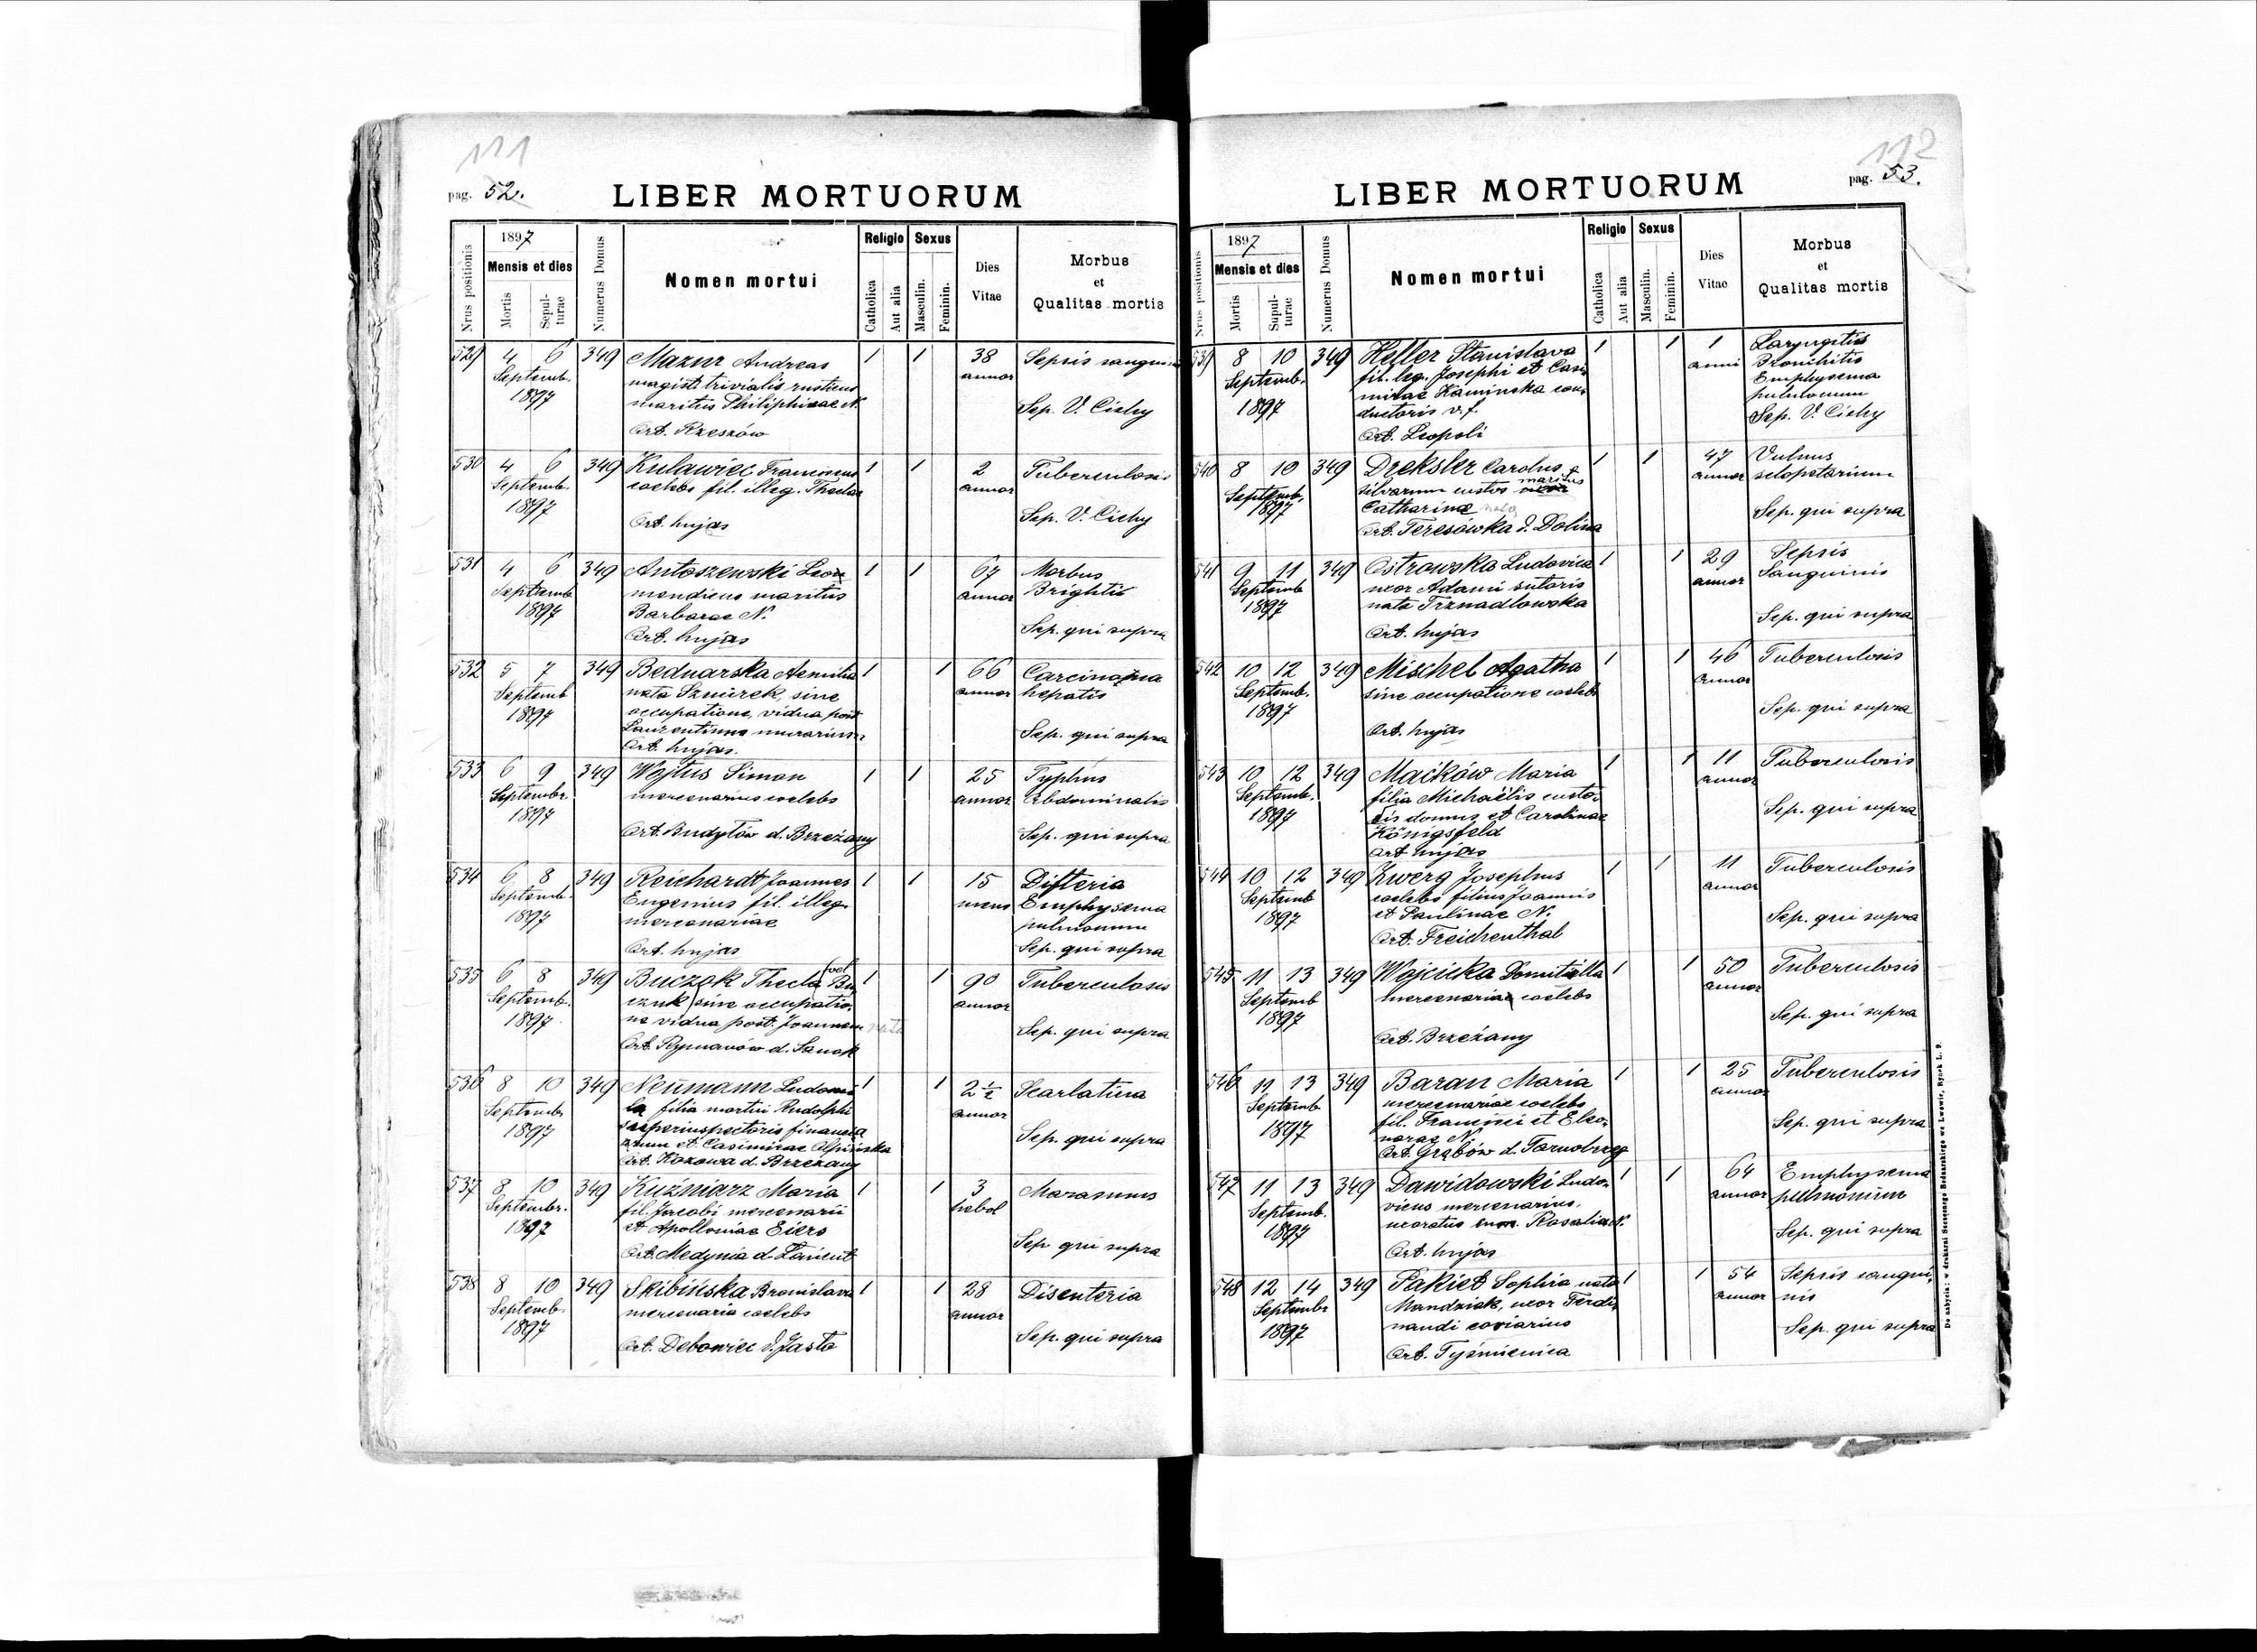 111
pag. 52.
LIBER MORTUORUM
Nrus positionis
1897
Mensis et dies
Mortis
Sepul-
turae
Numerus Domus
Nomen mortui
Religio
Catholica
Aut alia
Sexus
Masculin.
Feminin.
Dies
Vitae
Morbus
et
Qualitas mortis
529 4 6 349 Mazur Andreas 1 1 38 Sepsis sanguinis
Septemb. magist. trivialis rusticus annor
1897 maritus Philiphinae N. Sep. V. Cichy
Ort. Rzeszów
530 4 6 349 Kulawiec Franciscus 1 1 2 Tuberculosis
Septemb. coelebs fil. illeg. Theclae annor
1897 Ort. hujas Sep. V. Cichy
531 4 6 349 Antoszewski Leon 1 1 67 Morbus
Septemb mendicus maritus annor Brightii
1897 Barbarae N.
Ort. hujas Sep. qui supra
532 5 7 349 Bednarska Aemilia 1 1 66 Carcinoma
Septemb nata Sznurek, sine annor hepatis
1897 occupatione, vidua post
Laurentium murarium Sep. qui supra
Ort. hujas.
533 6 9 349 Wojtus Simon 1 1 25 Typhus
Septembr. mercenarius coelebs annor Abdominalis
1897
Ort. Budyłów d. Brzeżany Sep. qui supra
534 6 8 349 Reichardt Joannes 1 1 15 Difteria
Septemb. Eugenius fil. illeg. mens Emphysema
1897 mercenariae pulmonum
Ort. hujas Sep. qui supra
535 6 8 349 Buczak Thecla (vel Bu 1 1 90 Tuberculosis
Septemb. czuk) sine occupatio annor
1897 ne vidua post. Joannem nata Sep. qui supra
Ort. Rymanów d. Sanok
536 8 10 349 Neumann Ludomi 1 1 2 1/2 Scarlatina
Septemb la filia mortui Rudolphi annor
1897 superinspectoris financia
rum et Casimirae Alpinska Sep. qui supra
Ort. Kozowa d. Brzeżany
537 8 10 349 Kuźniarz Maria 1 1 3 Marasmus
Septembr. fil. Jacobi mercenarii hebol
1897 et Apolloniae Eiers
Ort. Medynia d. Łańcut Sep qui supra
538 8 10 349 Skibińska Bronislava 1 1 28 Disenteria
Septemb. mercenaria coelebs annor
1897
Ort. Debowiec d. Jasło Sep. qui supra
112
LIBER MORTUORUM
pag. 53.
Nrus positionis
1897
Mensis et dies
Mortis
Sepul-
turae
Numerus Domus
Nomen mortui
Religio
Catholica
Aut alia
Sexus
Masculin.
Feminin.
Dies
Vitae
Morbus
et
Qualitas mortis
539 8 10 349 Heller Stanislava 1 1 1 Laryngitis
Septemb. fil. leg. Josephi et Casi anni Bronchitis
1897 mirae Kaminska con Emphysema
ductoris v. f. pululomum
Ort. Leopoli Sep. V. Cichy
540 8 10 349 Dreksler Carolus 1 1 47 Vulnus
Septemb. silvarum custos maritus annor sclopetarium
1897 Catharinae nata
Ort. Teresówka d. Dolina Sep. qui supra
541 9 11 349 Ostrowska Ludovica 1 1 29 Sepsis
Septemb uxor Adami sutoris annor Sanguinis
1897 nata Trznadlowska
Ort. hujas Sep. qui supra
542 10 12 349 Mischel Agatha 1 1 46 Tuberculosis
Septemb. sine occupatione coelebs annor
1897
Ort. hujas Sep. qui supra
543 10 12 349 Maćków Maria 1 1 11 Tuberculosis
Septemb. filia Michaëlis custo annor
1897 dis domus et Carolinae
Königsfeld Sep. qui supra
Ort hujas
544 10 12 349 Kwerg Josephus 1 1 11 Tuberculosis
Septemb coelebs filius Joannis annor
1897 et Paulinae N.
Ort. Freichenthal Sep. qui supra
545 11 13 349 Wojcicka Domitilla 1 1 50 Tuberculosis
Septemb mercenaria coelebs annor
1897
Ort. Brzeżany Sep. qui supra
546 11 13 349 Baran Maria 1 1 25 Tuberculosis
Septemb mercenariae coelebs annor
1897 fil. Francisci et Eleo
norae N. Sep. qui supra
Ort. Grąbów d. Tarnobrzeg
547 11 13 349 Dawidowski Ludo 1 1 64 Emphysema
Septemb. vicus mercenarius, annor pulmonum
1897 uxoratus cum Rosalia N.
Ort. hujas Sep. qui supra
548 12 14 349 Pakiet Sophia nata 1 1 54 Sepsis sangui
Septembr Mandziak, uxor Ferdi annor nis
1897 nandi coriarius
Ort. Tyśmienica Sep. qui supra
Do nabycia: w drukarni Szczęsnego Bednarskiego we Lwowie, Rynek L. 9.